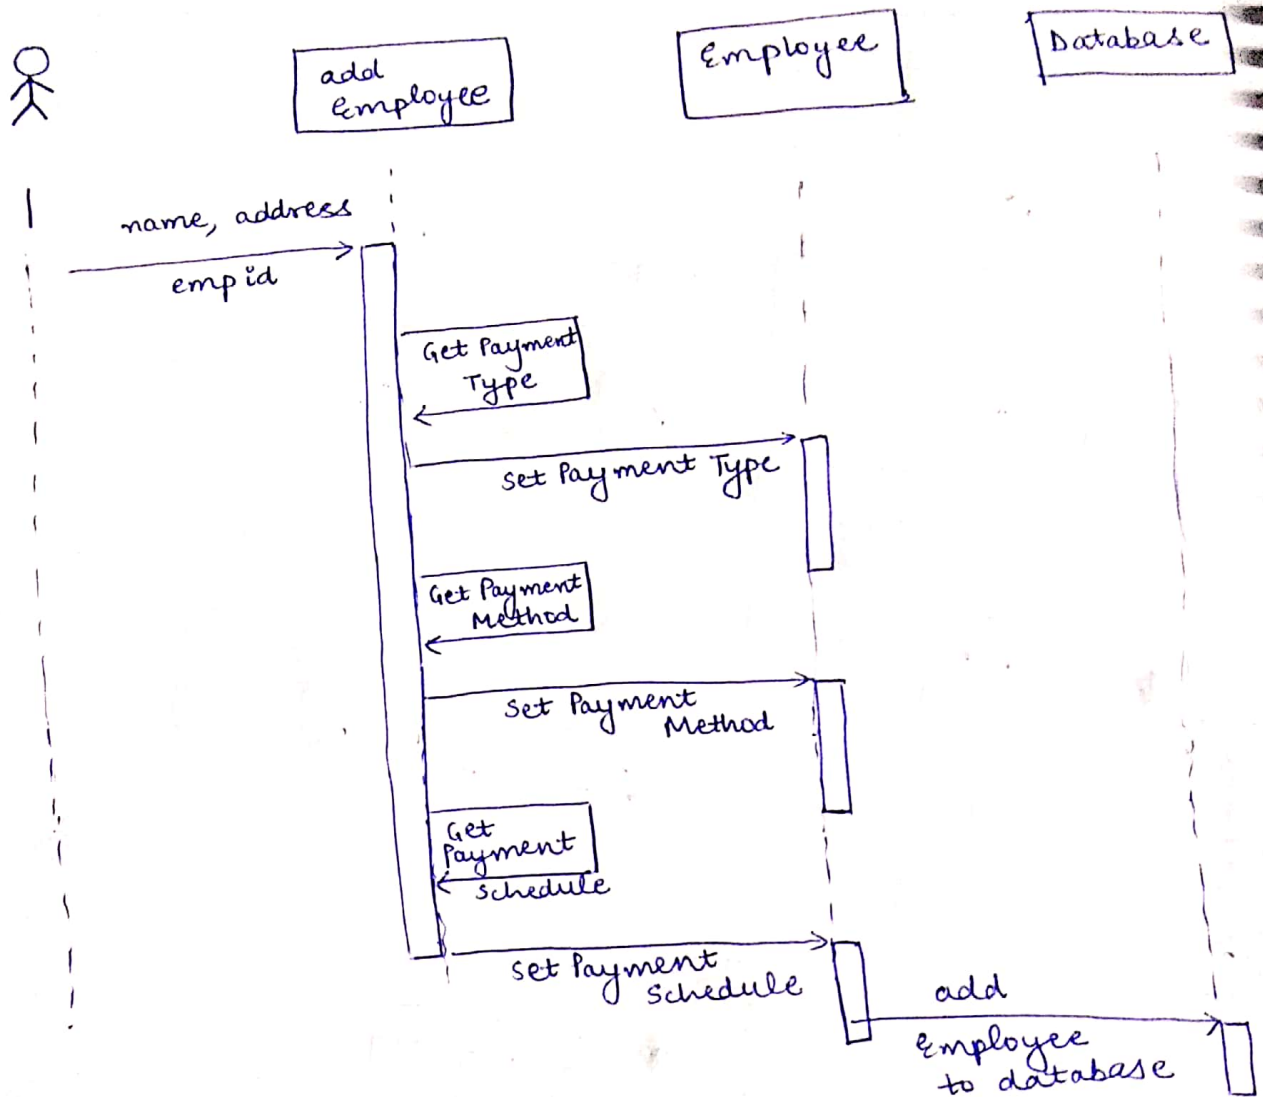 add
Employee
Employee
Database
name, address
empid
Get Payment
Type
set Payment Type
Get Payment
Method
Set Payment
Method
Get
Payment
schedule
set Payment
schedule
add
Employee
to database